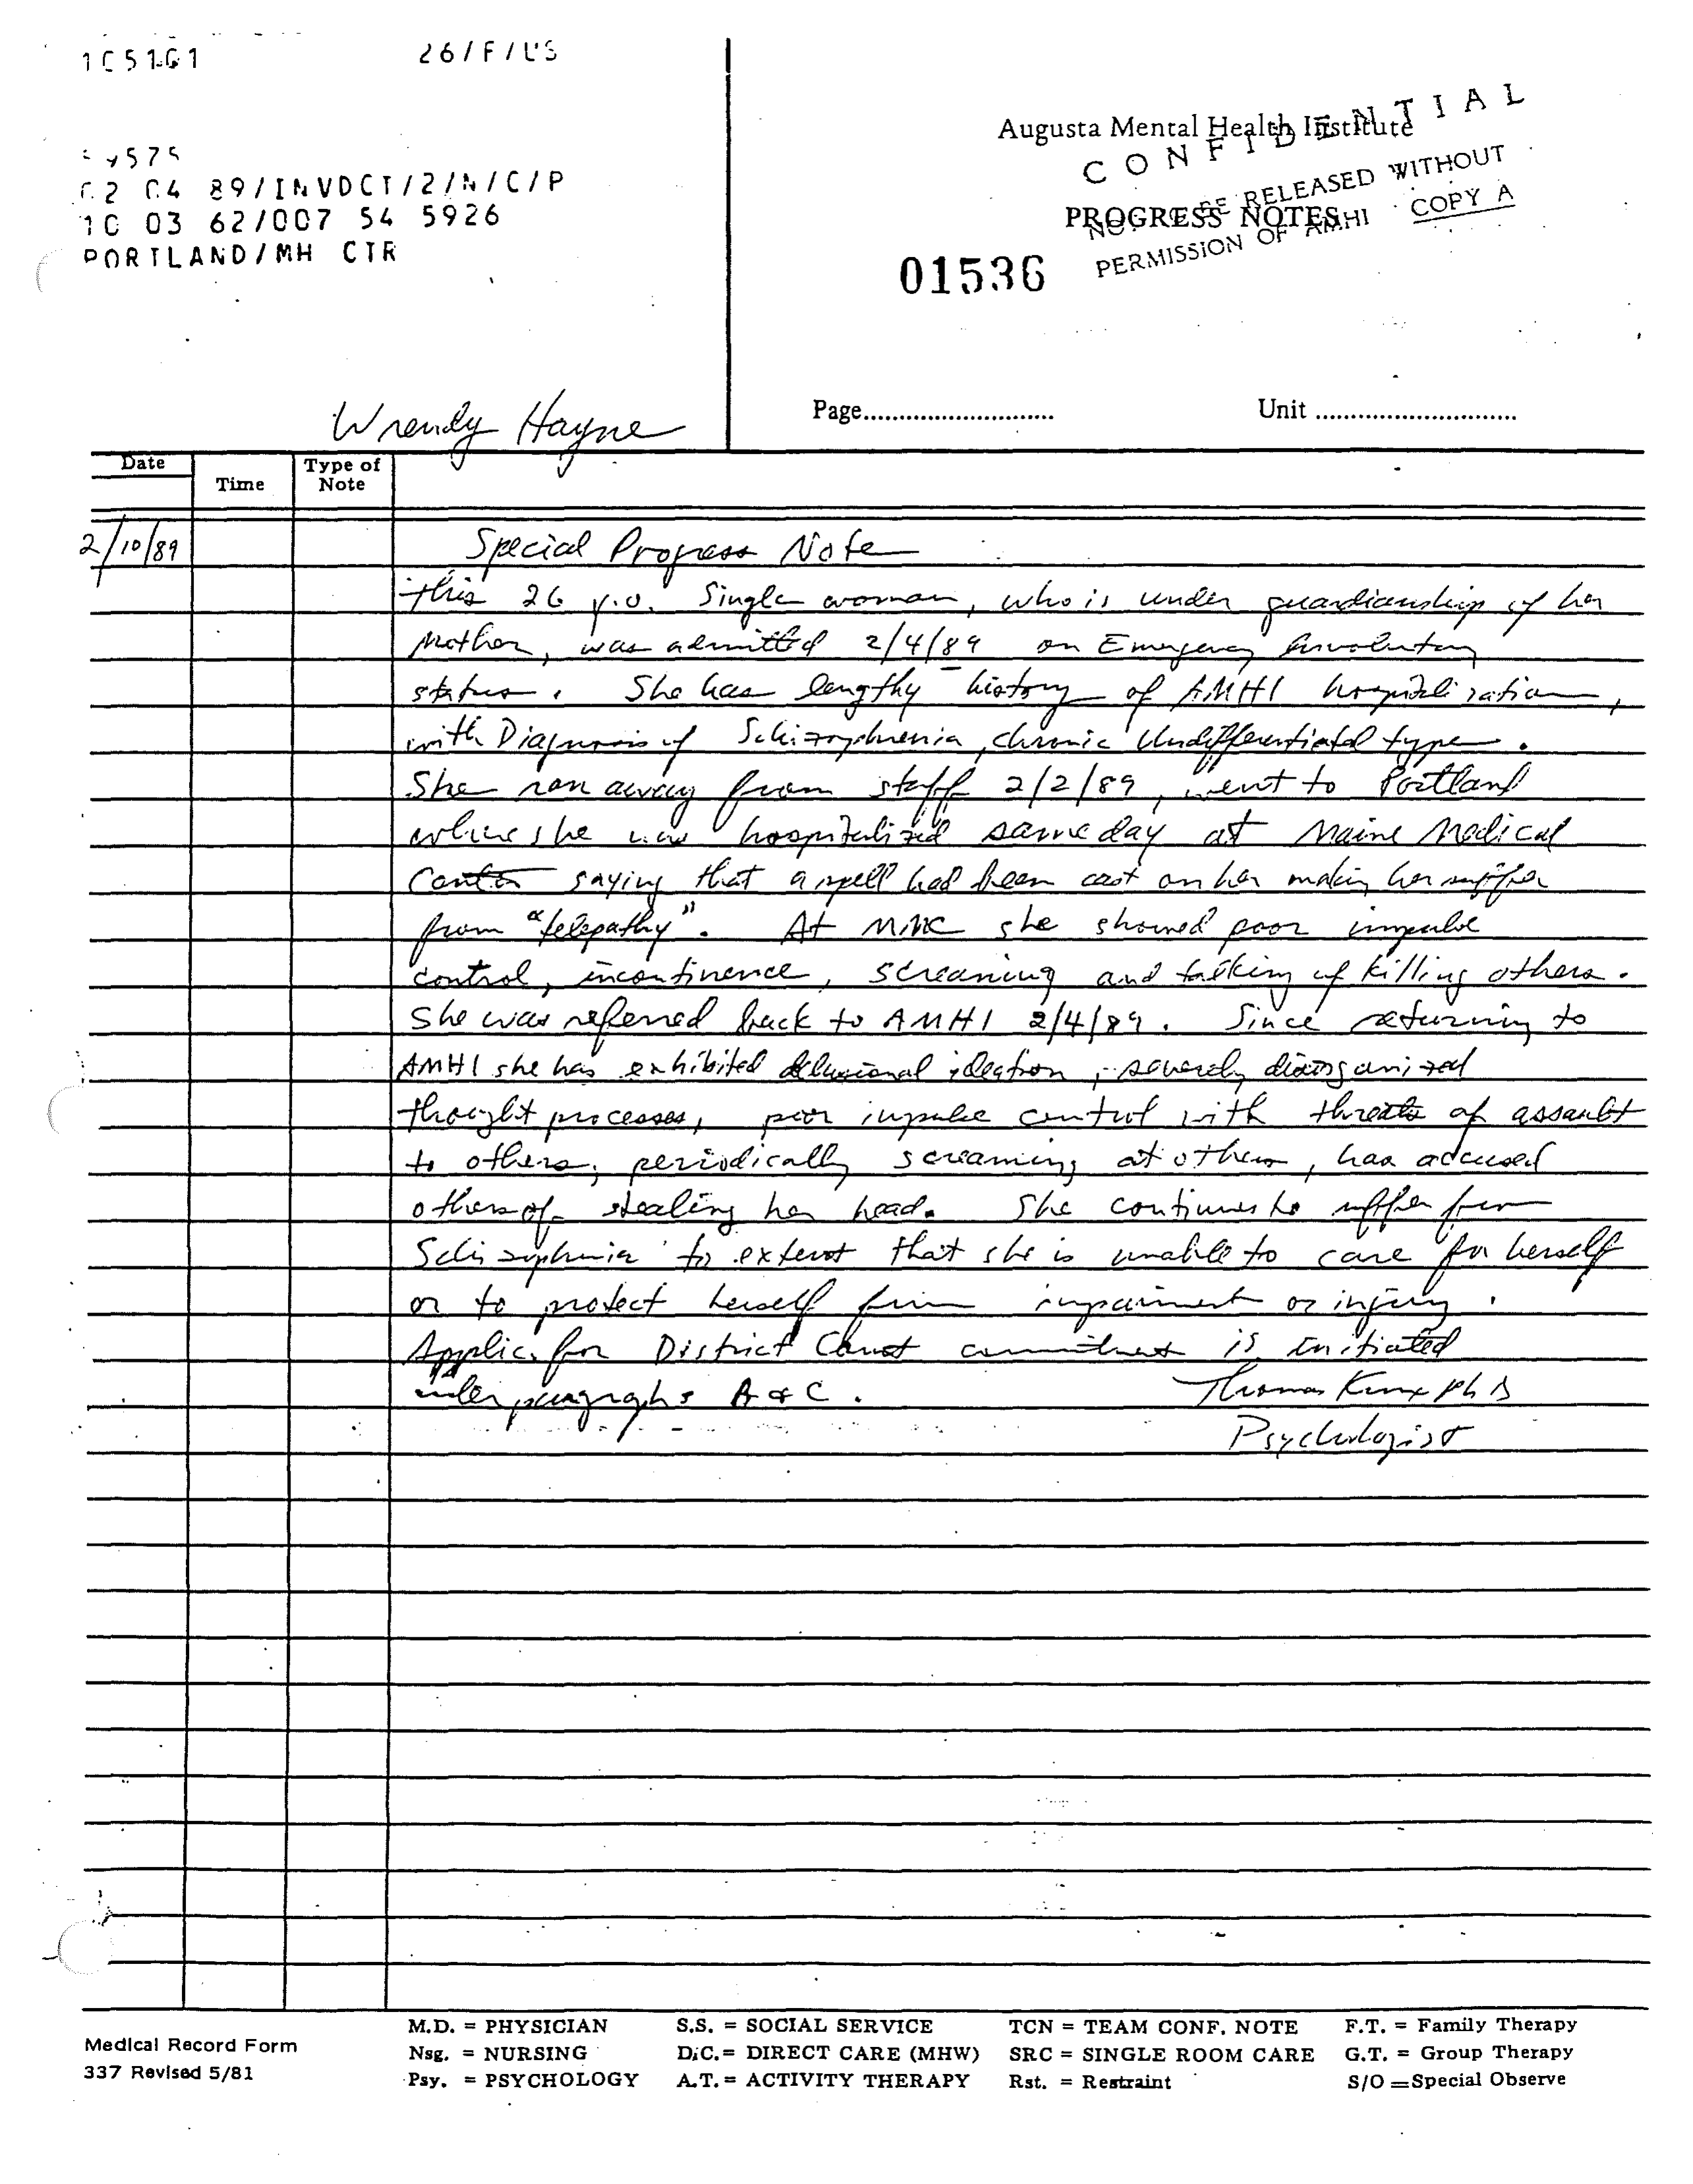 105161 26/F/US
89/INVDCT/2/N/C/P
10 03 62/007 54 5926
PORTLAND/MH CTR
Augusta Mental Health Institute
CONFIDENTIAL
PROGRESS NOTES
BE RELEASED WITHOUT
PERMISSION OF AMHI COPY A
01536
Wrendy Hayne
Page Unit
Date Time Type of Note
2/10/89 Special Progress Note
this 26 y.o. Single woman, who is under guardianship of her
Mother, was admitted 2/4/89 on Emergency Involuntary
status. She has lengthy history of AMHI hospitalization,
with Diagnosis of Schizophrenia, chronic Undifferentiated type.
She ran away from staff 2/2/89, went to Portland
where she was hospitalized same day at Maine Medical
Center saying that a spell had been cast on her making her suffer
from "telepathy". At MMC she showed poor impulse
control, incontinence, screaming and talking of killing others.
She was referred back to AMHI 2/4/89. Since returning to
AMHI she has exhibited delusional ideation, severely disorganized
thought processes, poor impulse control with threats of assault
to others, periodically screaming at others, has accused
others of stealing her head. She continues to suffer from
Schizophrenia to extent that she is unable to care for herself
or to protect herself from impairment or injury.
Applic. for District Court commitment is initiated
under paragraphs A & C. Thomas Ph D
Psychologist
Medical Record Form
337 Revised 5/81
M.D. = PHYSICIAN S.S. = SOCIAL SERVICE TCN = TEAM CONF. NOTE F.T. = Family Therapy
Nsg. = NURSING D.C. = DIRECT CARE (MHW) SRC = SINGLE ROOM CARE G.T. = Group Therapy
Psy. = PSYCHOLOGY A.T. = ACTIVITY THERAPY Rst. = Restraint S/O = Special Observe